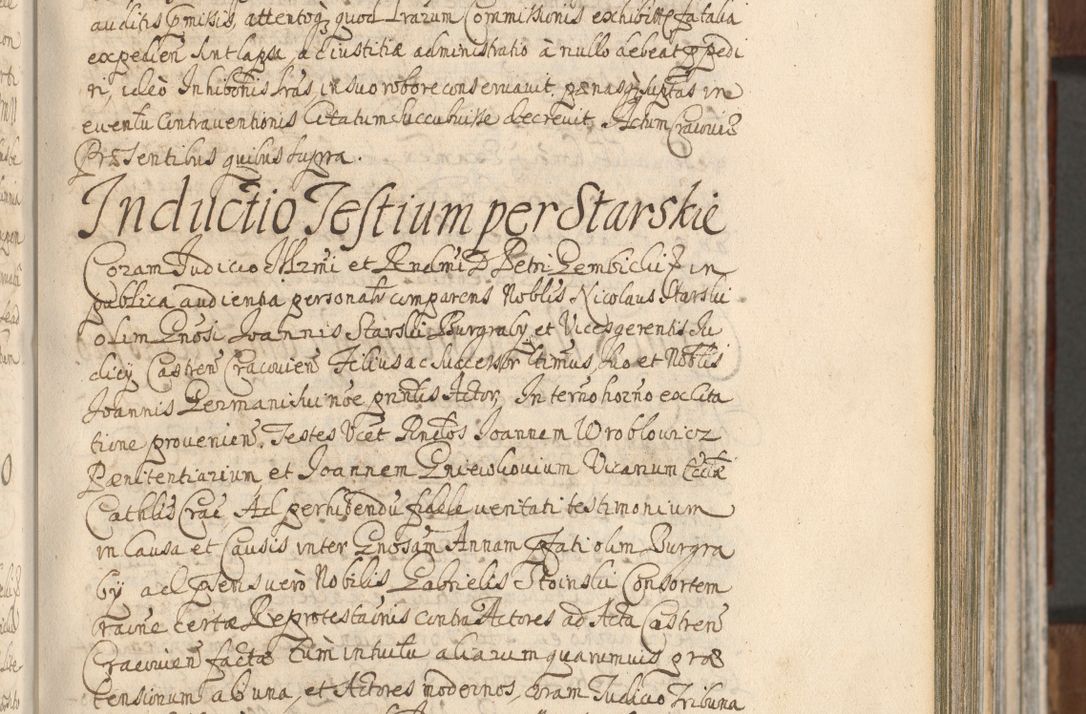 auditis praemissis, attentoque quod Lrarum Commissionis exhibitae fatalia
expedien sint lapsa, ac iustitiae administratio à nullo debeat
ri, ideò Inhibonis Lras, in suo robore conservavit, paenas suptas in
eventu Contraventionis Citatum succubuisse decrevit. Actum Cracoviae
Praesentibus quibus supra.
Inductio Testium per Starskie
Coram Judicio Illrmi et Rndmi D Petri Gembicki in
publica audientia personalr comparens Nobilis Nicolaus Starski
olim Gnosi Joannis Starski Burgraby et Vicesgerentis Ju
dicy Castren Cracovien Filius ac Successor ltimus, suo et Nobilis
Joannis Germani sui noe, prntis Actor, In terno horno ex cita
tione provenien. Testes Vcet Rndos Joannem Wroblowicz
Paenitentiarium et Joannem Gnieioliovium Vicarium Eccliae
Cathlis Crac, Ad perhibendu fidele veritati testimonium
in Causa et Causis inter Gnosam Annam pfati olim Burgra
by ad psens vero Nobilis Gabrielis Stoinski Consortem
raone certae Reprotestaonis contra Actores ad Acta Castren
Cracovien factae tum intuitu aliarum quarumvis prae
tensionum ab una, et Actores modernos, coram Judicio Tribuna